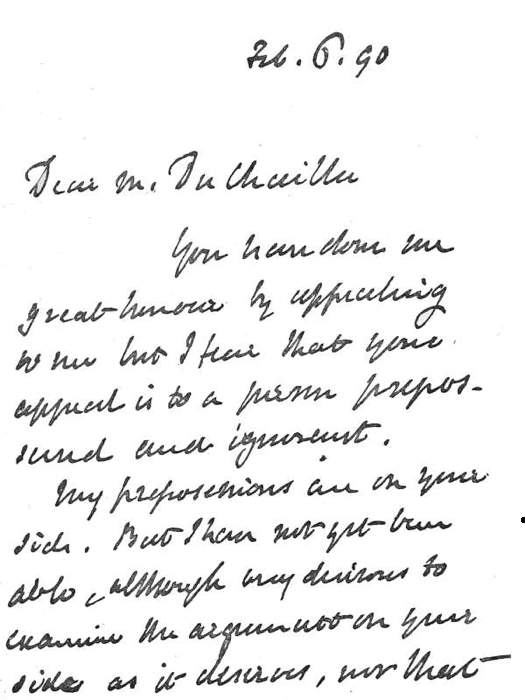 Feb. 6. 90
Dear M. Du Chaillu
You have done me
great honour by appealing
to me but I fear that your
appeal is to a person prepos-
sessed and ignorant.
My prepossessions are on your
side. But I have not yet been
able, although very desirous to
examine the argument on your
side as it deserves, nor that